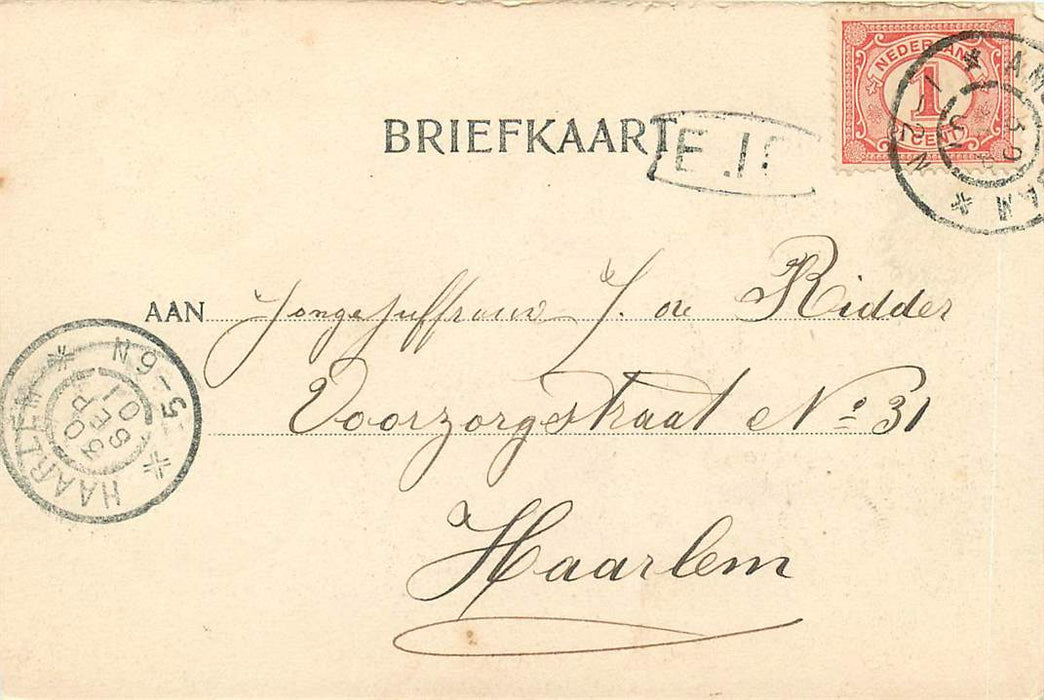 NEDERLAND
1
CENT
BRIEFKAART
E.10
AAN Jongejuffrouw J. de Ridder
Voorzorgstraat No. 31
Haarlem
HAARLEM
30 SEP 01
5-6N